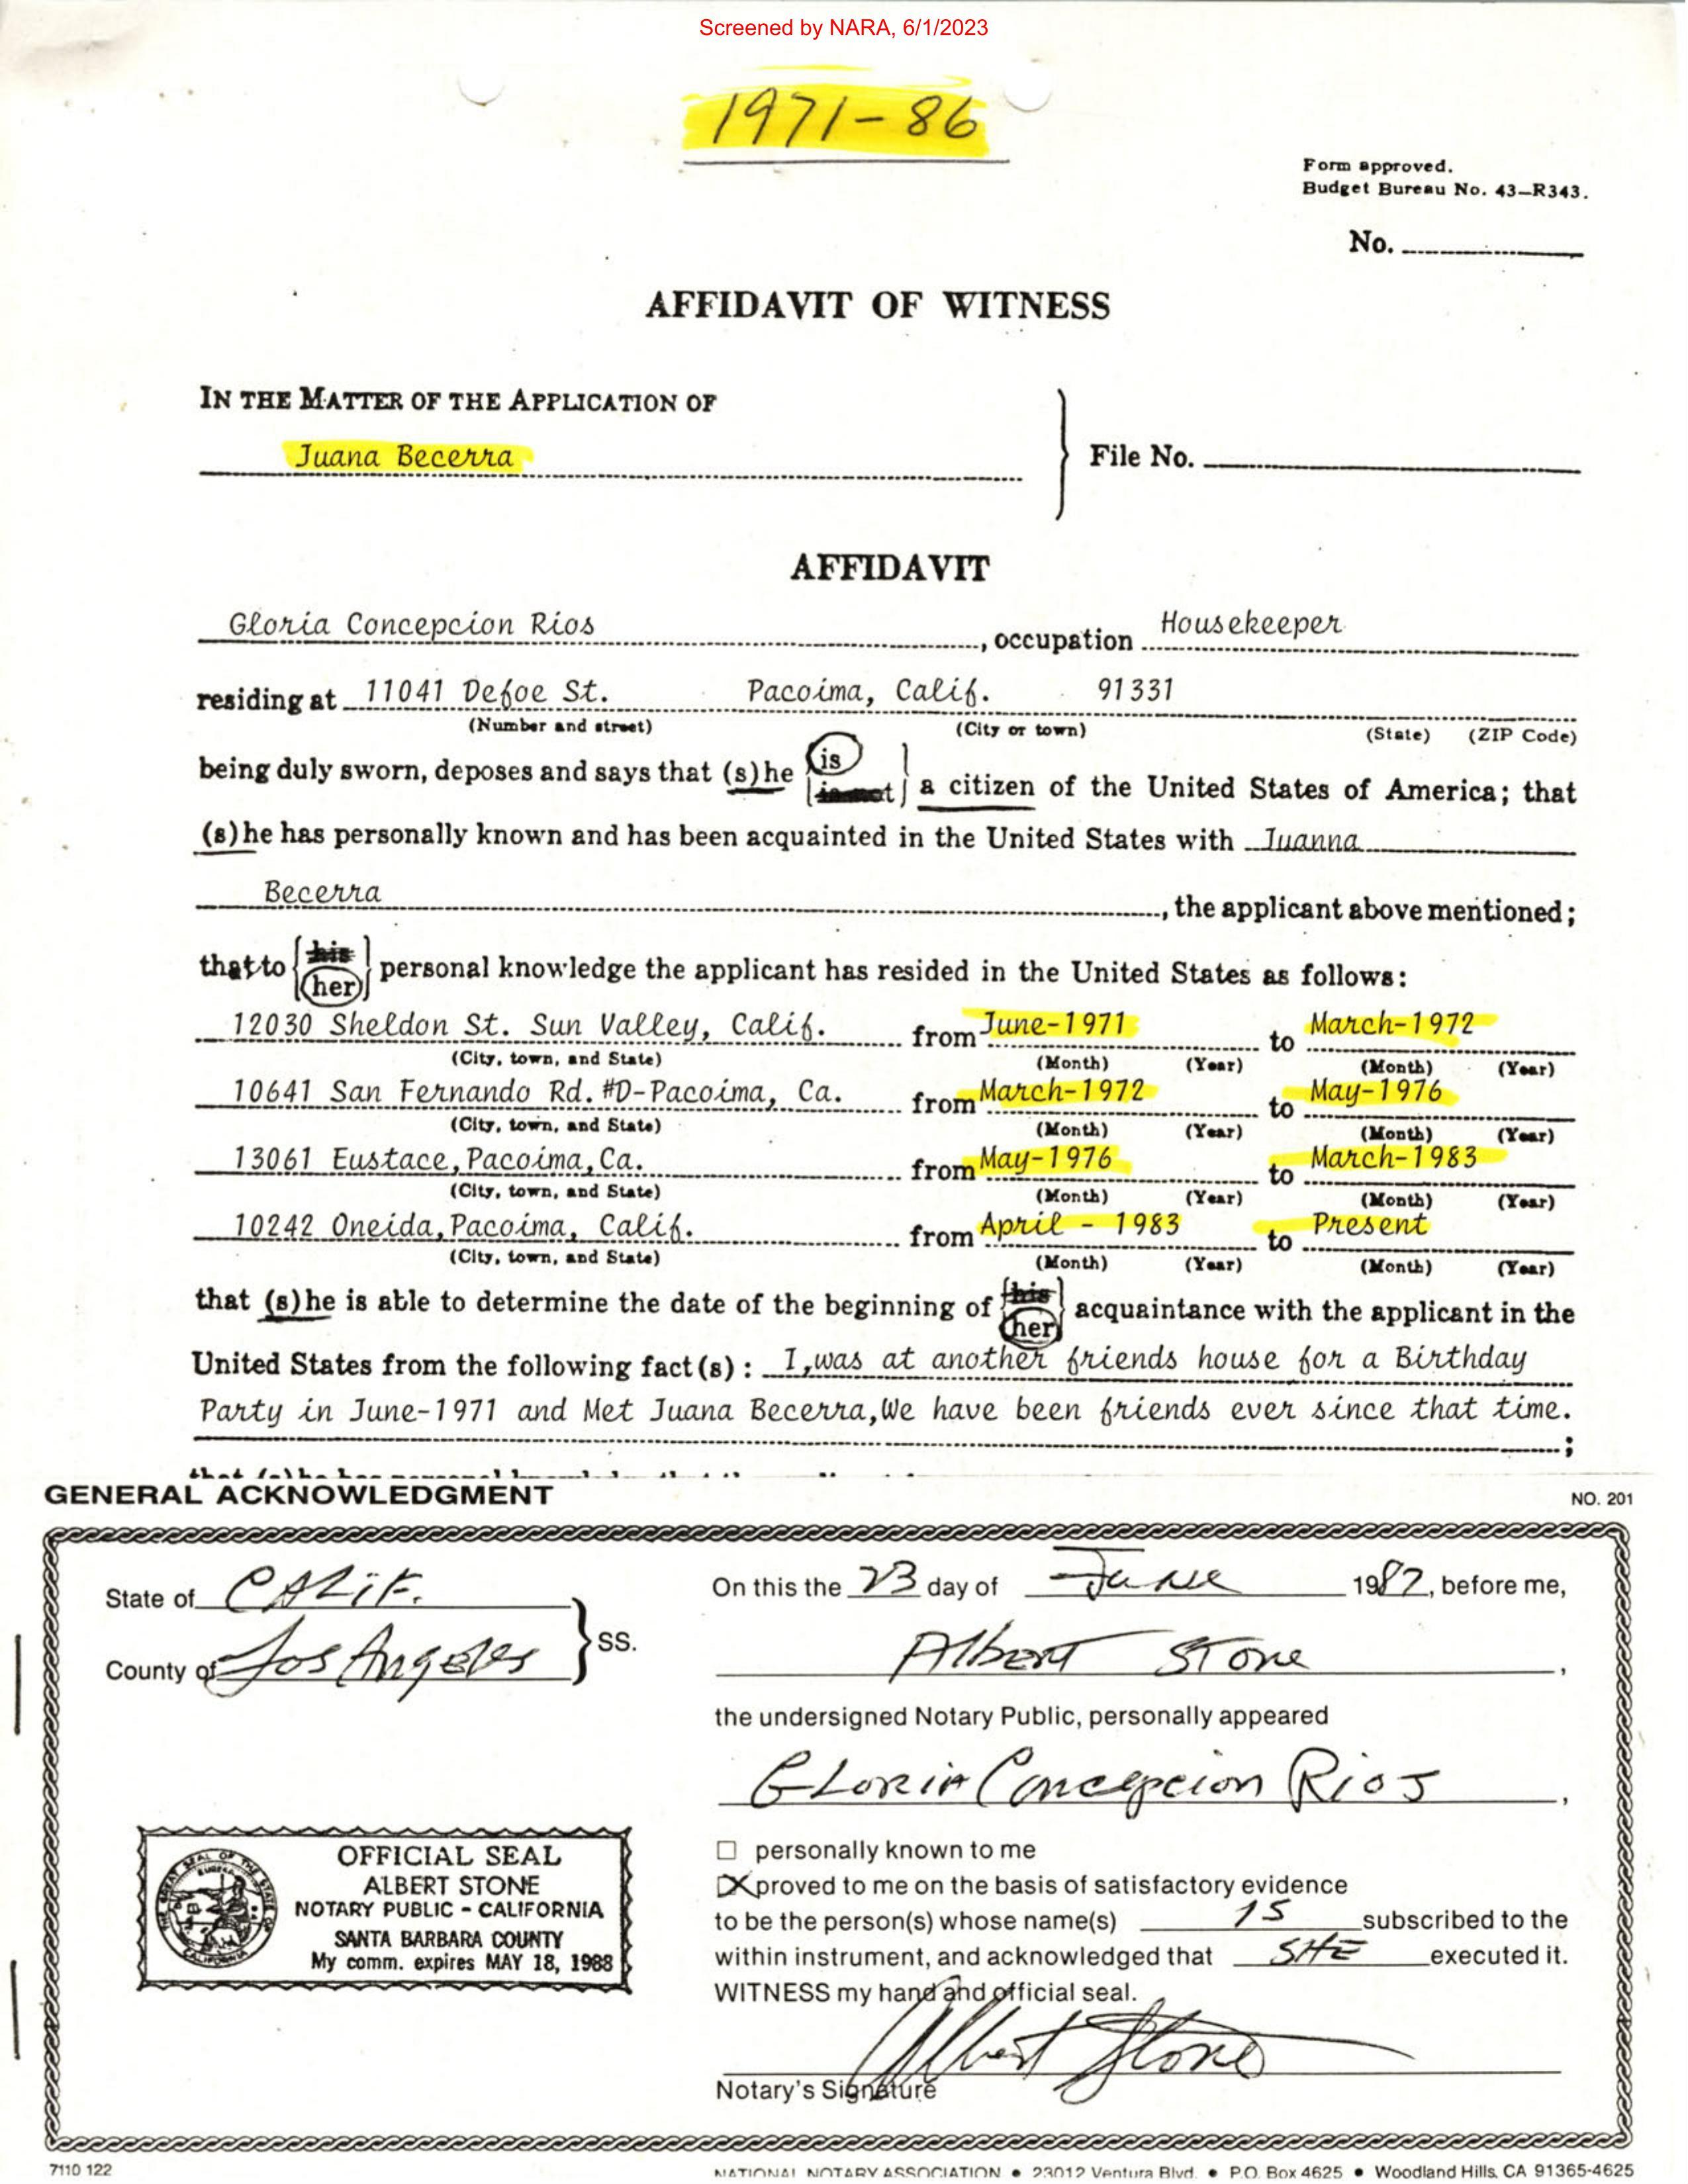 Screened by NARA, 6/1/2023
1971-86
Form approved.
Budget Bureau No. 43-R343.
No.
AFFIDAVIT OF WITNESS
IN THE MATTER OF THE APPLICATION OF
Juana Becerra
File No.
AFFIDAVIT
Gloria Concepcion Rios, occupation Housekeeper
residing at 11041 Defoe St. Pacoima, Calif. 91331
(Number and street) (City or town) (State) (ZIP Code)
being duly sworn, deposes and says that (s)he {is / is not} a citizen of the United States of America; that
(s)he has personally known and has been acquainted in the United States with Juanna
Becerra, the applicant above mentioned;
that to {his / her} personal knowledge the applicant has resided in the United States as follows:
12030 Sheldon St. Sun Valley, Calif. from June-1971 to March-1972
(City, town, and State) (Month) (Year) (Month) (Year)
10641 San Fernando Rd. #D-Pacoima, Ca. from March-1972 to May-1976
(City, town, and State) (Month) (Year) (Month) (Year)
13061 Eustace, Pacoima, Ca. from May-1976 to March-1983
(City, town, and State) (Month) (Year) (Month) (Year)
10242 Oneida, Pacoima, Calif. from April - 1983 to Present
(City, town, and State) (Month) (Year) (Month) (Year)
that (s)he is able to determine the date of the beginning of {his / her} acquaintance with the applicant in the
United States from the following fact(s): I,was at another friends house for a Birthday
Party in June-1971 and Met Juana Becerra,We have been friends ever since that time.
;
GENERAL ACKNOWLEDGMENT NO. 201
State of CALiF.
County of Los Angeles
SS.
On this the 23 day of June 1987, before me,
Albert Stone,
the undersigned Notary Public, personally appeared
Gloria Concepcion Rios,
☐ personally known to me
☒ proved to me on the basis of satisfactory evidence
to be the person(s) whose name(s) IS subscribed to the
within instrument, and acknowledged that SHE executed it.
WITNESS my hand and official seal.
Albert Stone
Notary's Signature
OFFICIAL SEAL
ALBERT STONE
NOTARY PUBLIC - CALIFORNIA
SANTA BARBARA COUNTY
My comm. expires MAY 18, 1988
7110 122
NATIONAL NOTARY ASSOCIATION • 23012 Ventura Blvd. • P.O. Box 4625 • Woodland Hills, CA 91365-4625